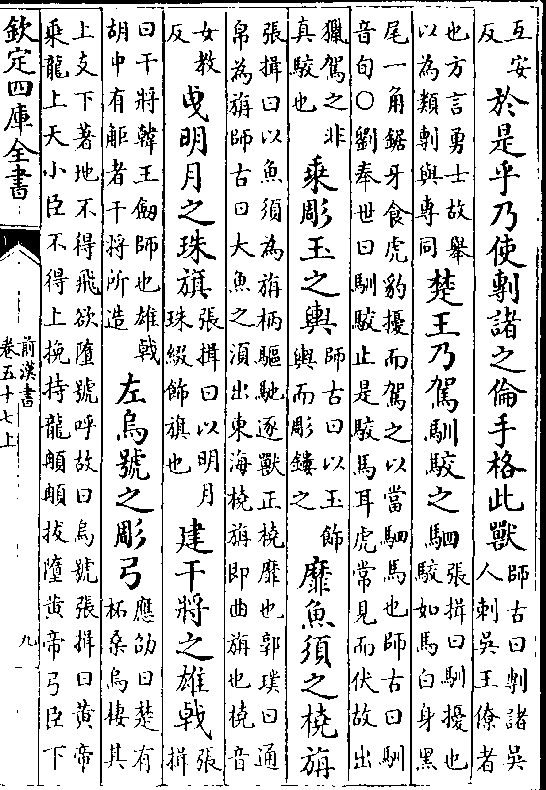 互安
反
於是乎乃使剸諸之倫手格此獸
師古曰剸諸吳
人刺吳王僚者
也方言勇士故舉
以為類剸與專同
楚王乃駕馴駮之駟
張揖曰馴擾也
駮如馬白身黑
尾一角鋸牙食虎豹擾而駕之以當駟馬也師古曰馴
音旬○劉奉世曰馴駮止是駮馬耳虎常見而伏故出
獵駕之非
真駮也
乘彫玉之輿
師古曰以玉飾
輿而彫鏤之
靡魚須之橈旃
張揖曰以魚須為旃柄驅馳逐獸正橈靡也郭璞曰通
帛為旃師古曰大魚之須出東海橈旃即曲旃也橈音
女教
反
曵明月之珠旗
張揖曰以明月
珠綴飾旗也
建干將之雄戟
張
揖
曰干將韓王劒師也雄戟
胡中有者干將所造
左烏號之彫弓
應劭曰楚有
柘桑烏棲其
上支下著地不得飛欲墮號呼故曰烏號張揖曰黃帝
乘龍上天小臣不得上挽持龍拔墮黃帝弓臣下
欽定四庫全書
前漢書
卷五十七上
九